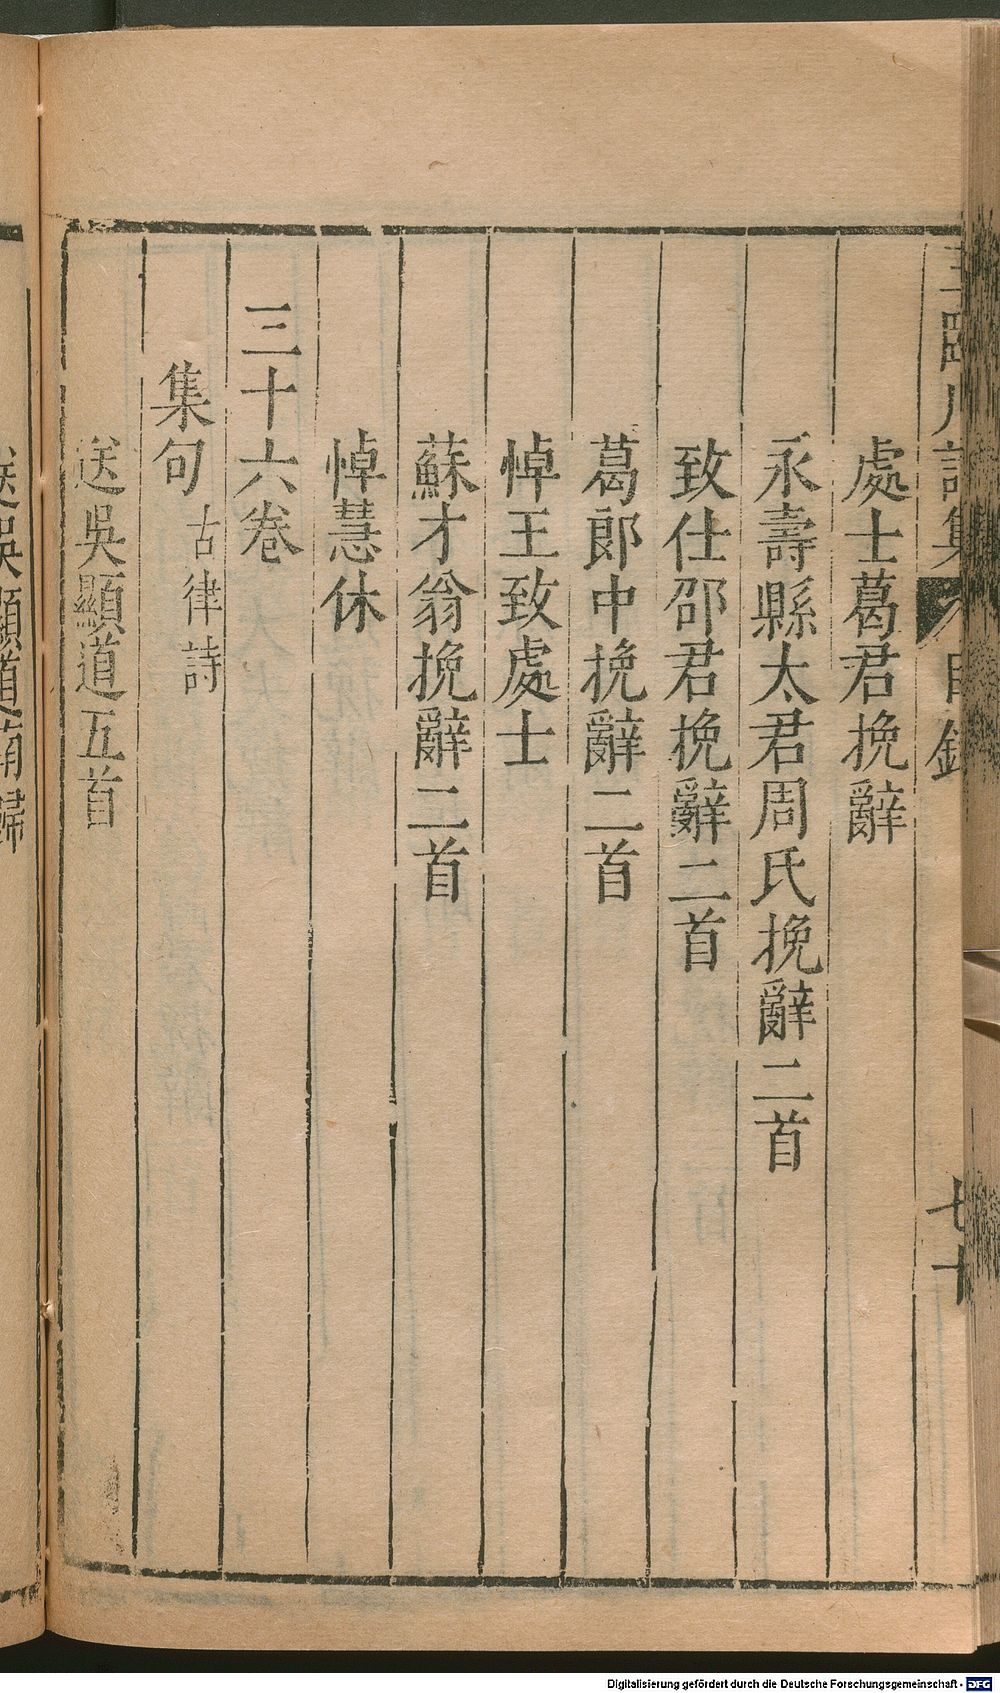 王臨川詩集 目錄 七十
處士葛君挽辭
永壽縣太君周氏挽辭二首
致仕邵君挽辭二首
葛郎中挽辭二首
悼王致處士
蘇才翁挽辭二首
悼慧休
三十六卷
集句 古律詩
送吳顯道五首
送吳顯道南歸
Digitalisierung gefördert durch die Deutsche Forschungsgemeinschaft - DFG